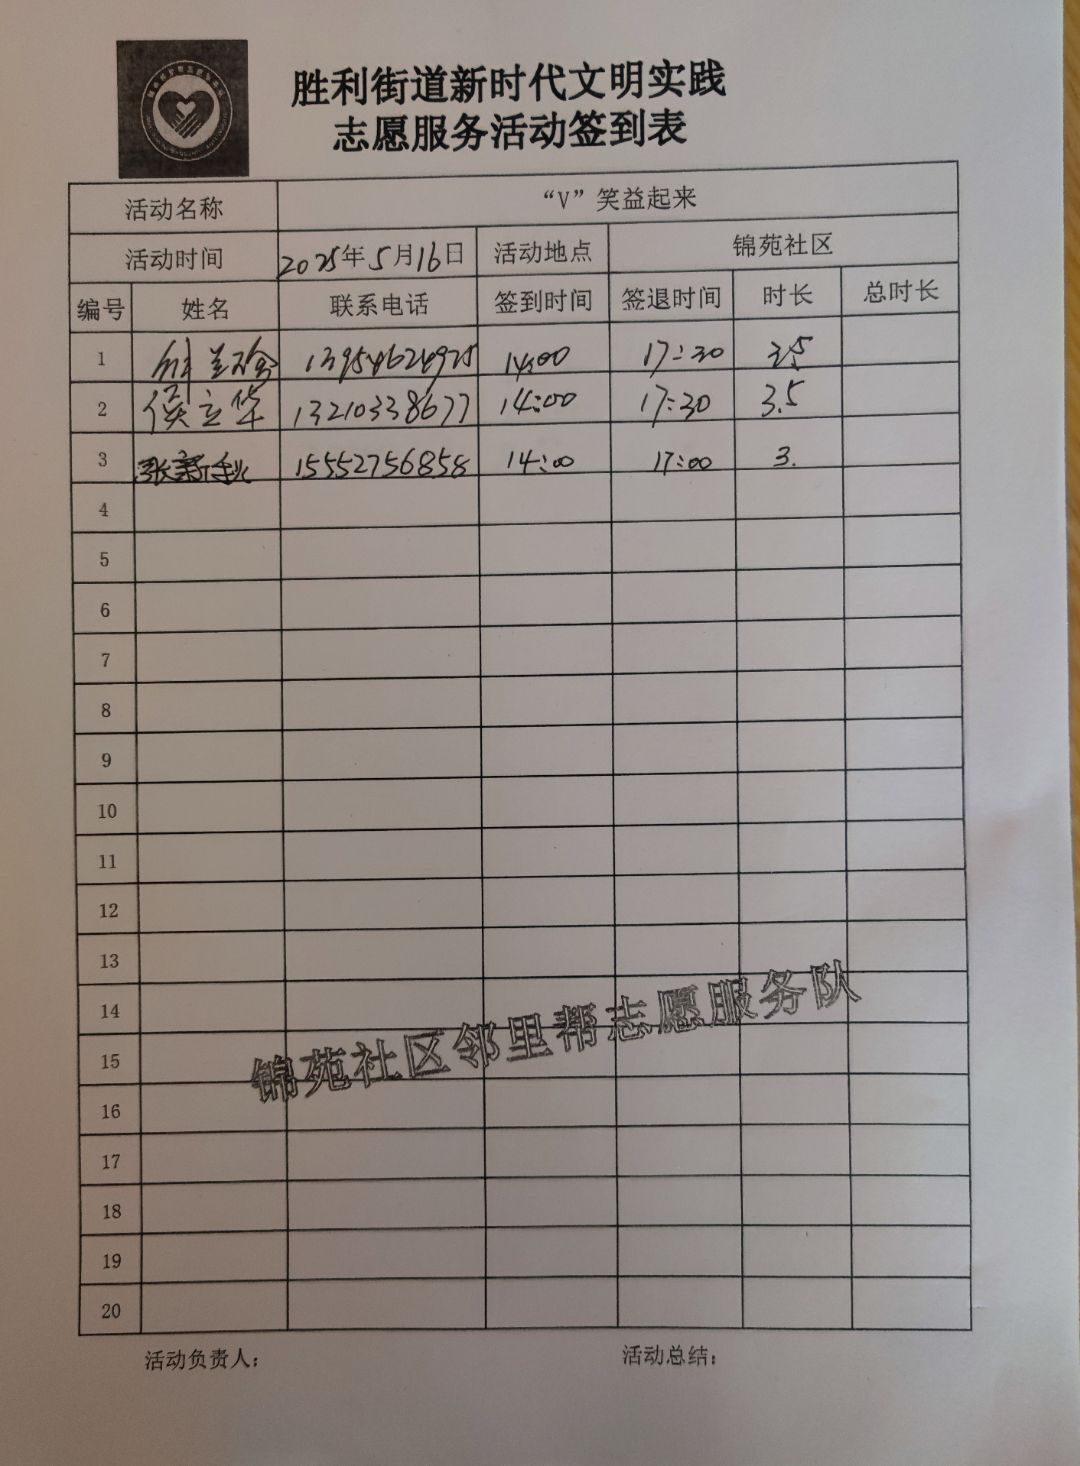 胜利街道新时代文明实践
志愿服务活动签到表
活动名称 “V”笑益起来
活动时间 2025年5月16日 活动地点 锦苑社区
编号 姓名 联系电话 签到时间 签退时间 时长 总时长
1 13954624925 14:00 17:30 3.5
2 侯立华 13210338677 14:00 17:30 3.5
3 张新秋 15552756858 14:00 17:00 3.
4
5
6
7
8
9
10
11
12
13
14
15
锦苑社区邻里帮志愿服务队
16
17
18
19
20
活动负责人： 活动总结：